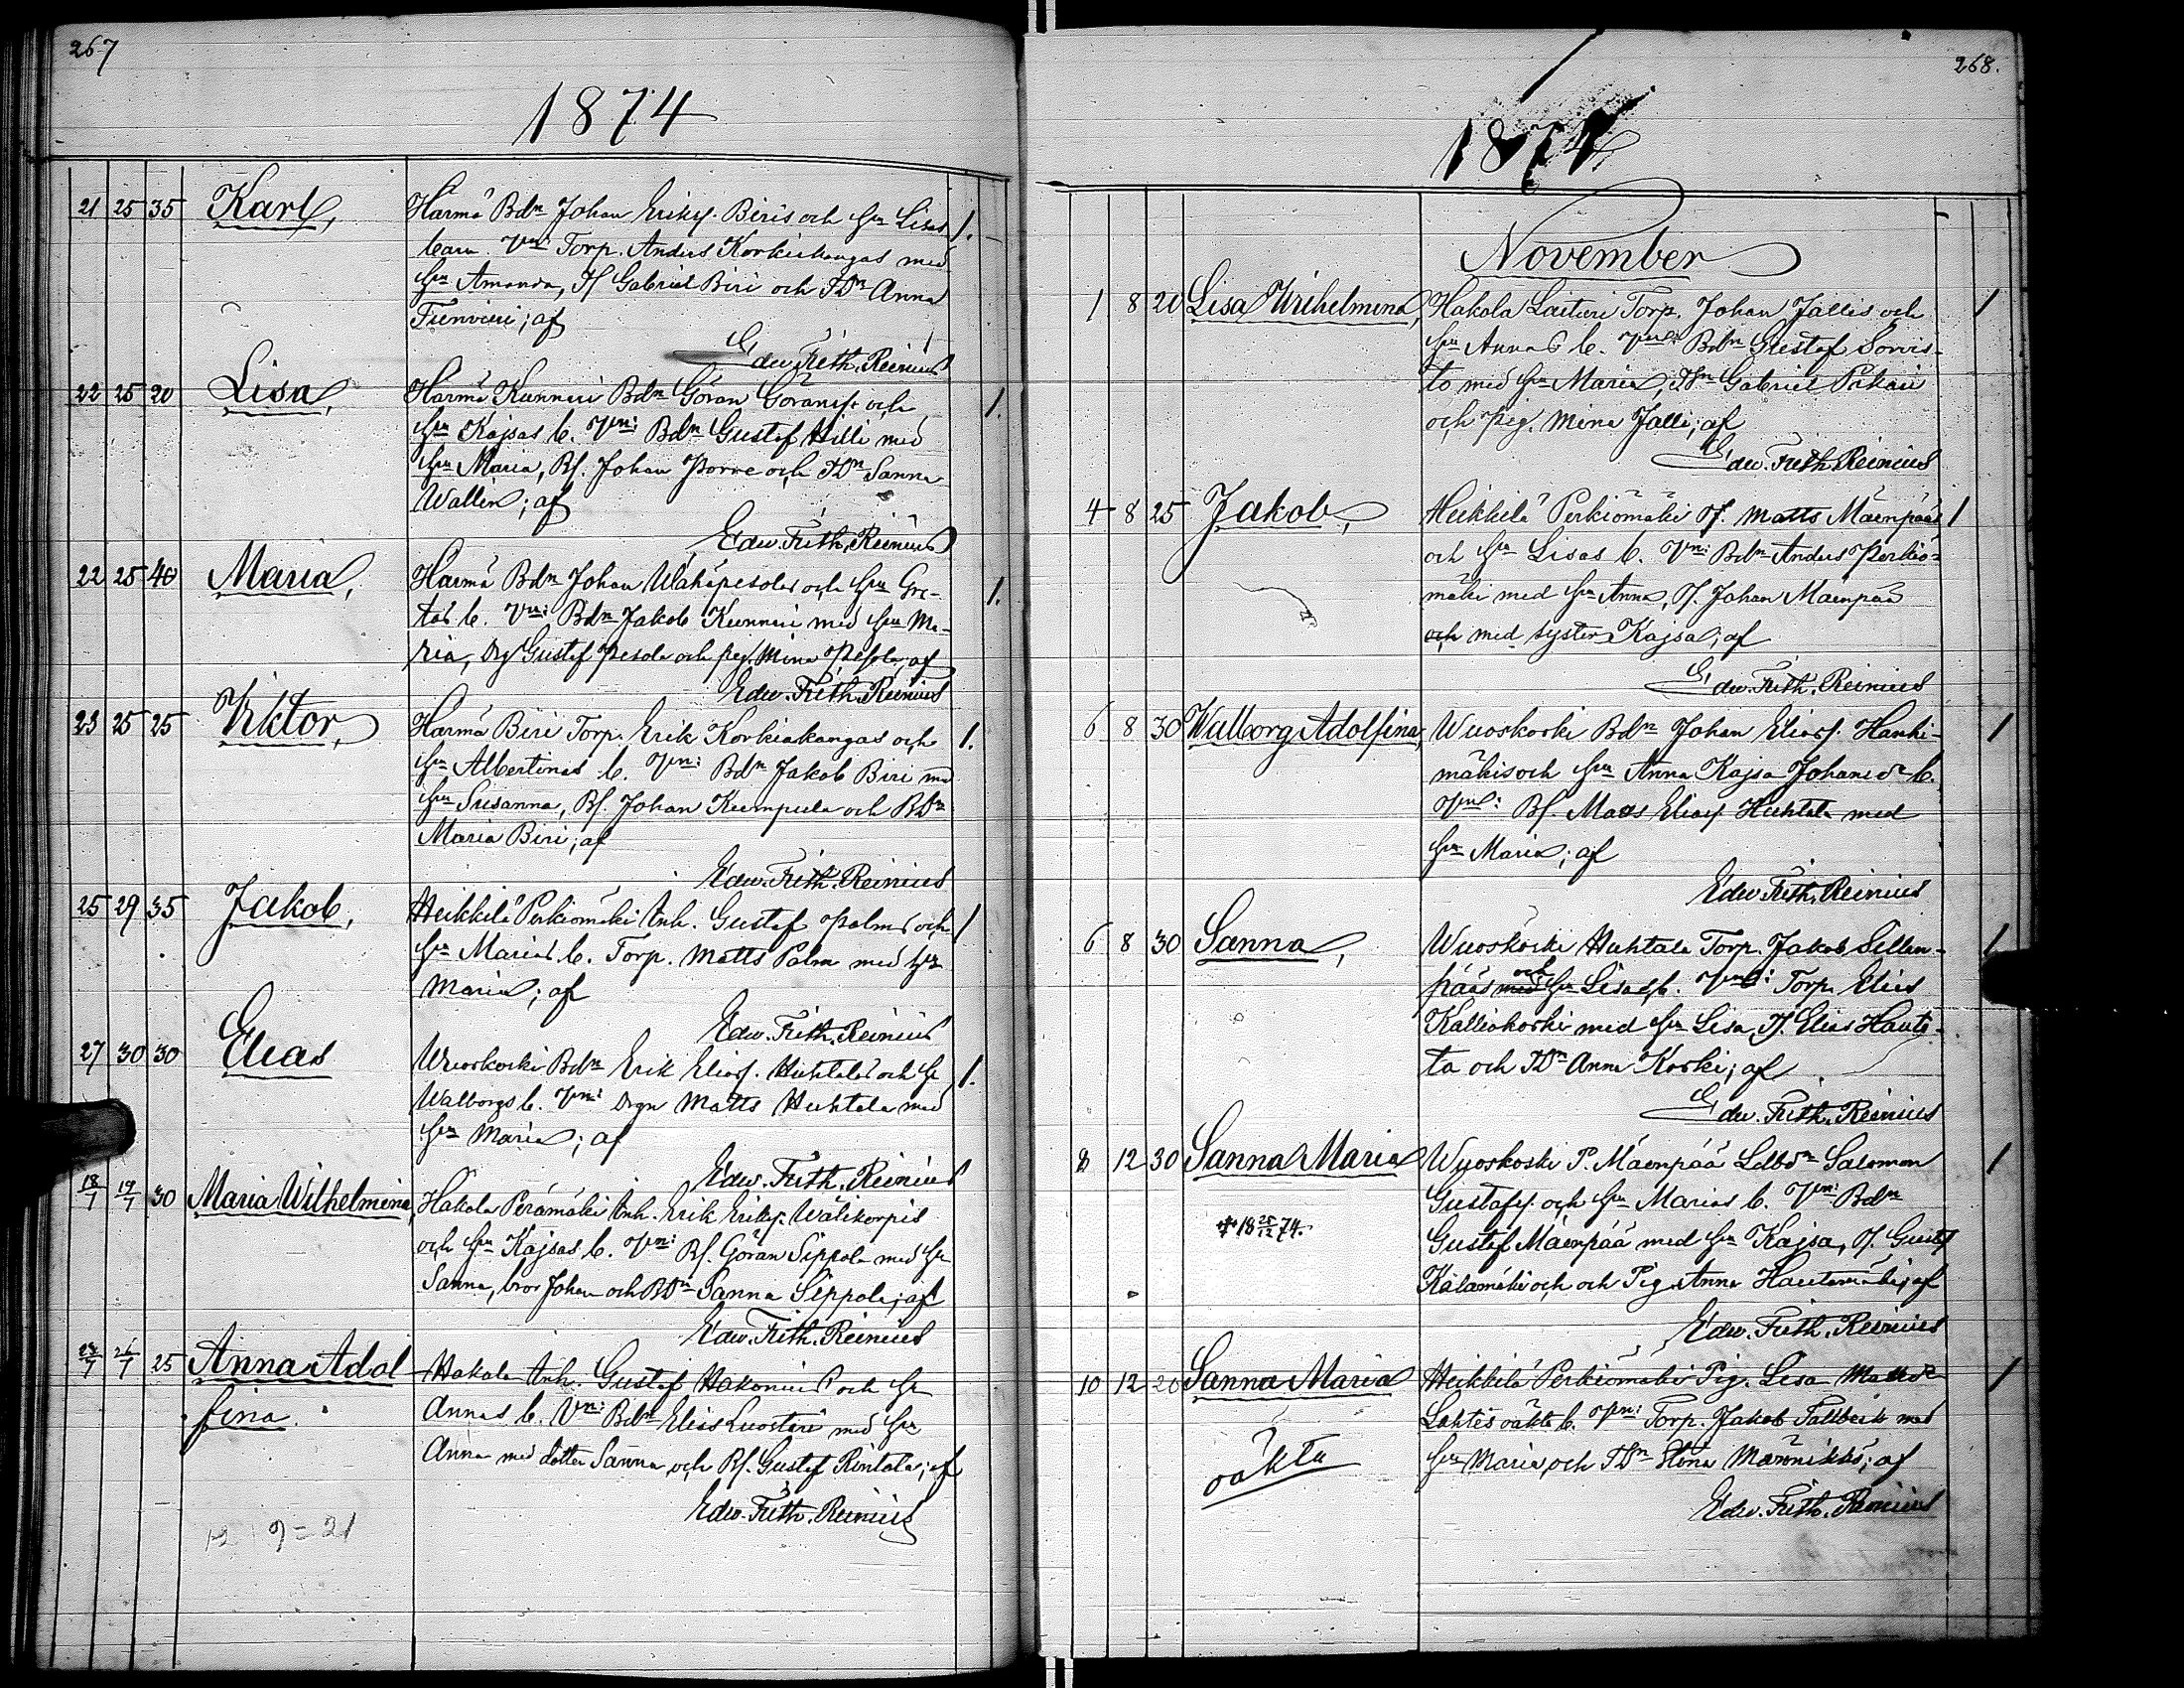 267
1874
21 25 35 Karl, Härmä Bdn Johan Eriks. Biris och hu Lisas 1.
barn. Vn: Torp. Anders Korkiakangas med
hu Amanda, Js Gabriel Biri och TDn Anna
; af
Edw. Frith. Reinius
22 25 20 Lisa, Härmä Kunnari Bdn Göran Göranss. och 1.
hu Kajsas b. Vn: Bdn Gustaf Hilli med
hu Maria, Bs. Johan Porre och TDn Sanna
Wallin; af
Edw. Frith. Reinius
22 25 40 Maria, Härmä Bdn Johan Wähäpesolas och hu Gre- 1.
tas b. Vn: Bdn Jakob Kunnari med hu Ma-
ria, Drg Gustaf Pesola och pig. Mina Pesola; af
Edw. Frith. Reinius
23 25 25 Viktor, Härmä Biri Torp. Erik Korkiakangas och 1.
hu Albertinas b. Vn: Bdn Jakob Biri med
hu Susanna, Bs. Johan Kumpula och BDn
Maria Biri; af
Edw. Frith. Reinius
25 29 35 Jakob, Heikkilä Perkiömäki Inh. Gustaf Palms och 1
hu Marias b. Torp. Matts Palm med hu
Maria; af
Edw. Frith. Reinius
27 30 30 Elias Wuoskoski Bdn Erik Eliass. Huhtalas och hu 1.
Walborgs b. Vn: Drgn Matts Huhtala med
hu Maria; af
Edw. Frith. Reinius
18/7 19/7 30 Maria Wilhelmina, Hakola Perämäki Inh. Erik Eriks. Wälikorpis
och hu Kajsas b. Vn: Bs. Göran Sippola med hu
Sanna, bror Johan och BDn Sanna Sippola; af
Edw. Frith. Reinius
24/7 26/7 25 Anna Adol- Hakola Inh. Gustaf Hakonens och hu
fina. Annas b. Vn: Bdn Elias Luostari med hu
Anna med dotter Sanna och Bs. Gustaf Rintala; af
Edw. Frith. Reinius
12 9 = 21
268.
1874
November
1 8 20 Lisa Wilhelmina, Hakola Laituri Torp. Johan Jallis och 1
hu Annas b. Vn: Bdn Gustaf Sorvis-
to med hu Maria, Gabriel Pakari
och pig. Mina Jalli; af
Edw. Frith. Reinius
4 8 25 Jakob, Heikkilä Perkiömäki Js. Matts Mäenpääs 1
och hu Lisas b. Vn: Bdn Anders Perkiö-
mäki med hu Anna, Js. Johan Mäenpää
och med syster Kajsa; af
Edw. Frith. Reinius
6 8 30 Walborg Adolfina, Wuoskoski Bdn Johan Eliass. Hanhi- 1
mäkis och hu Anna Kajsa Johansdr b.
Vn: Bs. Mats Eliass. Huhtala med
hu Maria; af
Edw. Frith. Reinius
6 8 30 Sanna, Wuoskoski Huhtala Torp. Jakob Sillan- 1
pääs med och hu Lisas b. Vn: Torp. Elias
Kalliokoski med hu Lisa, Js. Elias Hauta-
ta och TDn Anna Koski; af
Edw. Frith. Reinius
8 12 30 Sanna Maria Wuoskoski P. Mäenpää Ldbdn Salomon 1
Gustafss. och hu Marias b. Vn: Bdn
† 18 25/12 74. Gustaf Mäenpää med hu Kajsa, Js. Gustaf
Kalamäki och och Pig. Anna Hautamäki; af
Edw. Frith. Reinius
10 12 20 Sanna Maria Heikkilä Perkiömäki Pig. Lisa Mattsdr 1
Lahtis oäkta b. Vn: Torp. Jakob Fallbäck med
oäkta hu Maria och TDn Stina Männikkö; af
Edw. Frith. Reinius